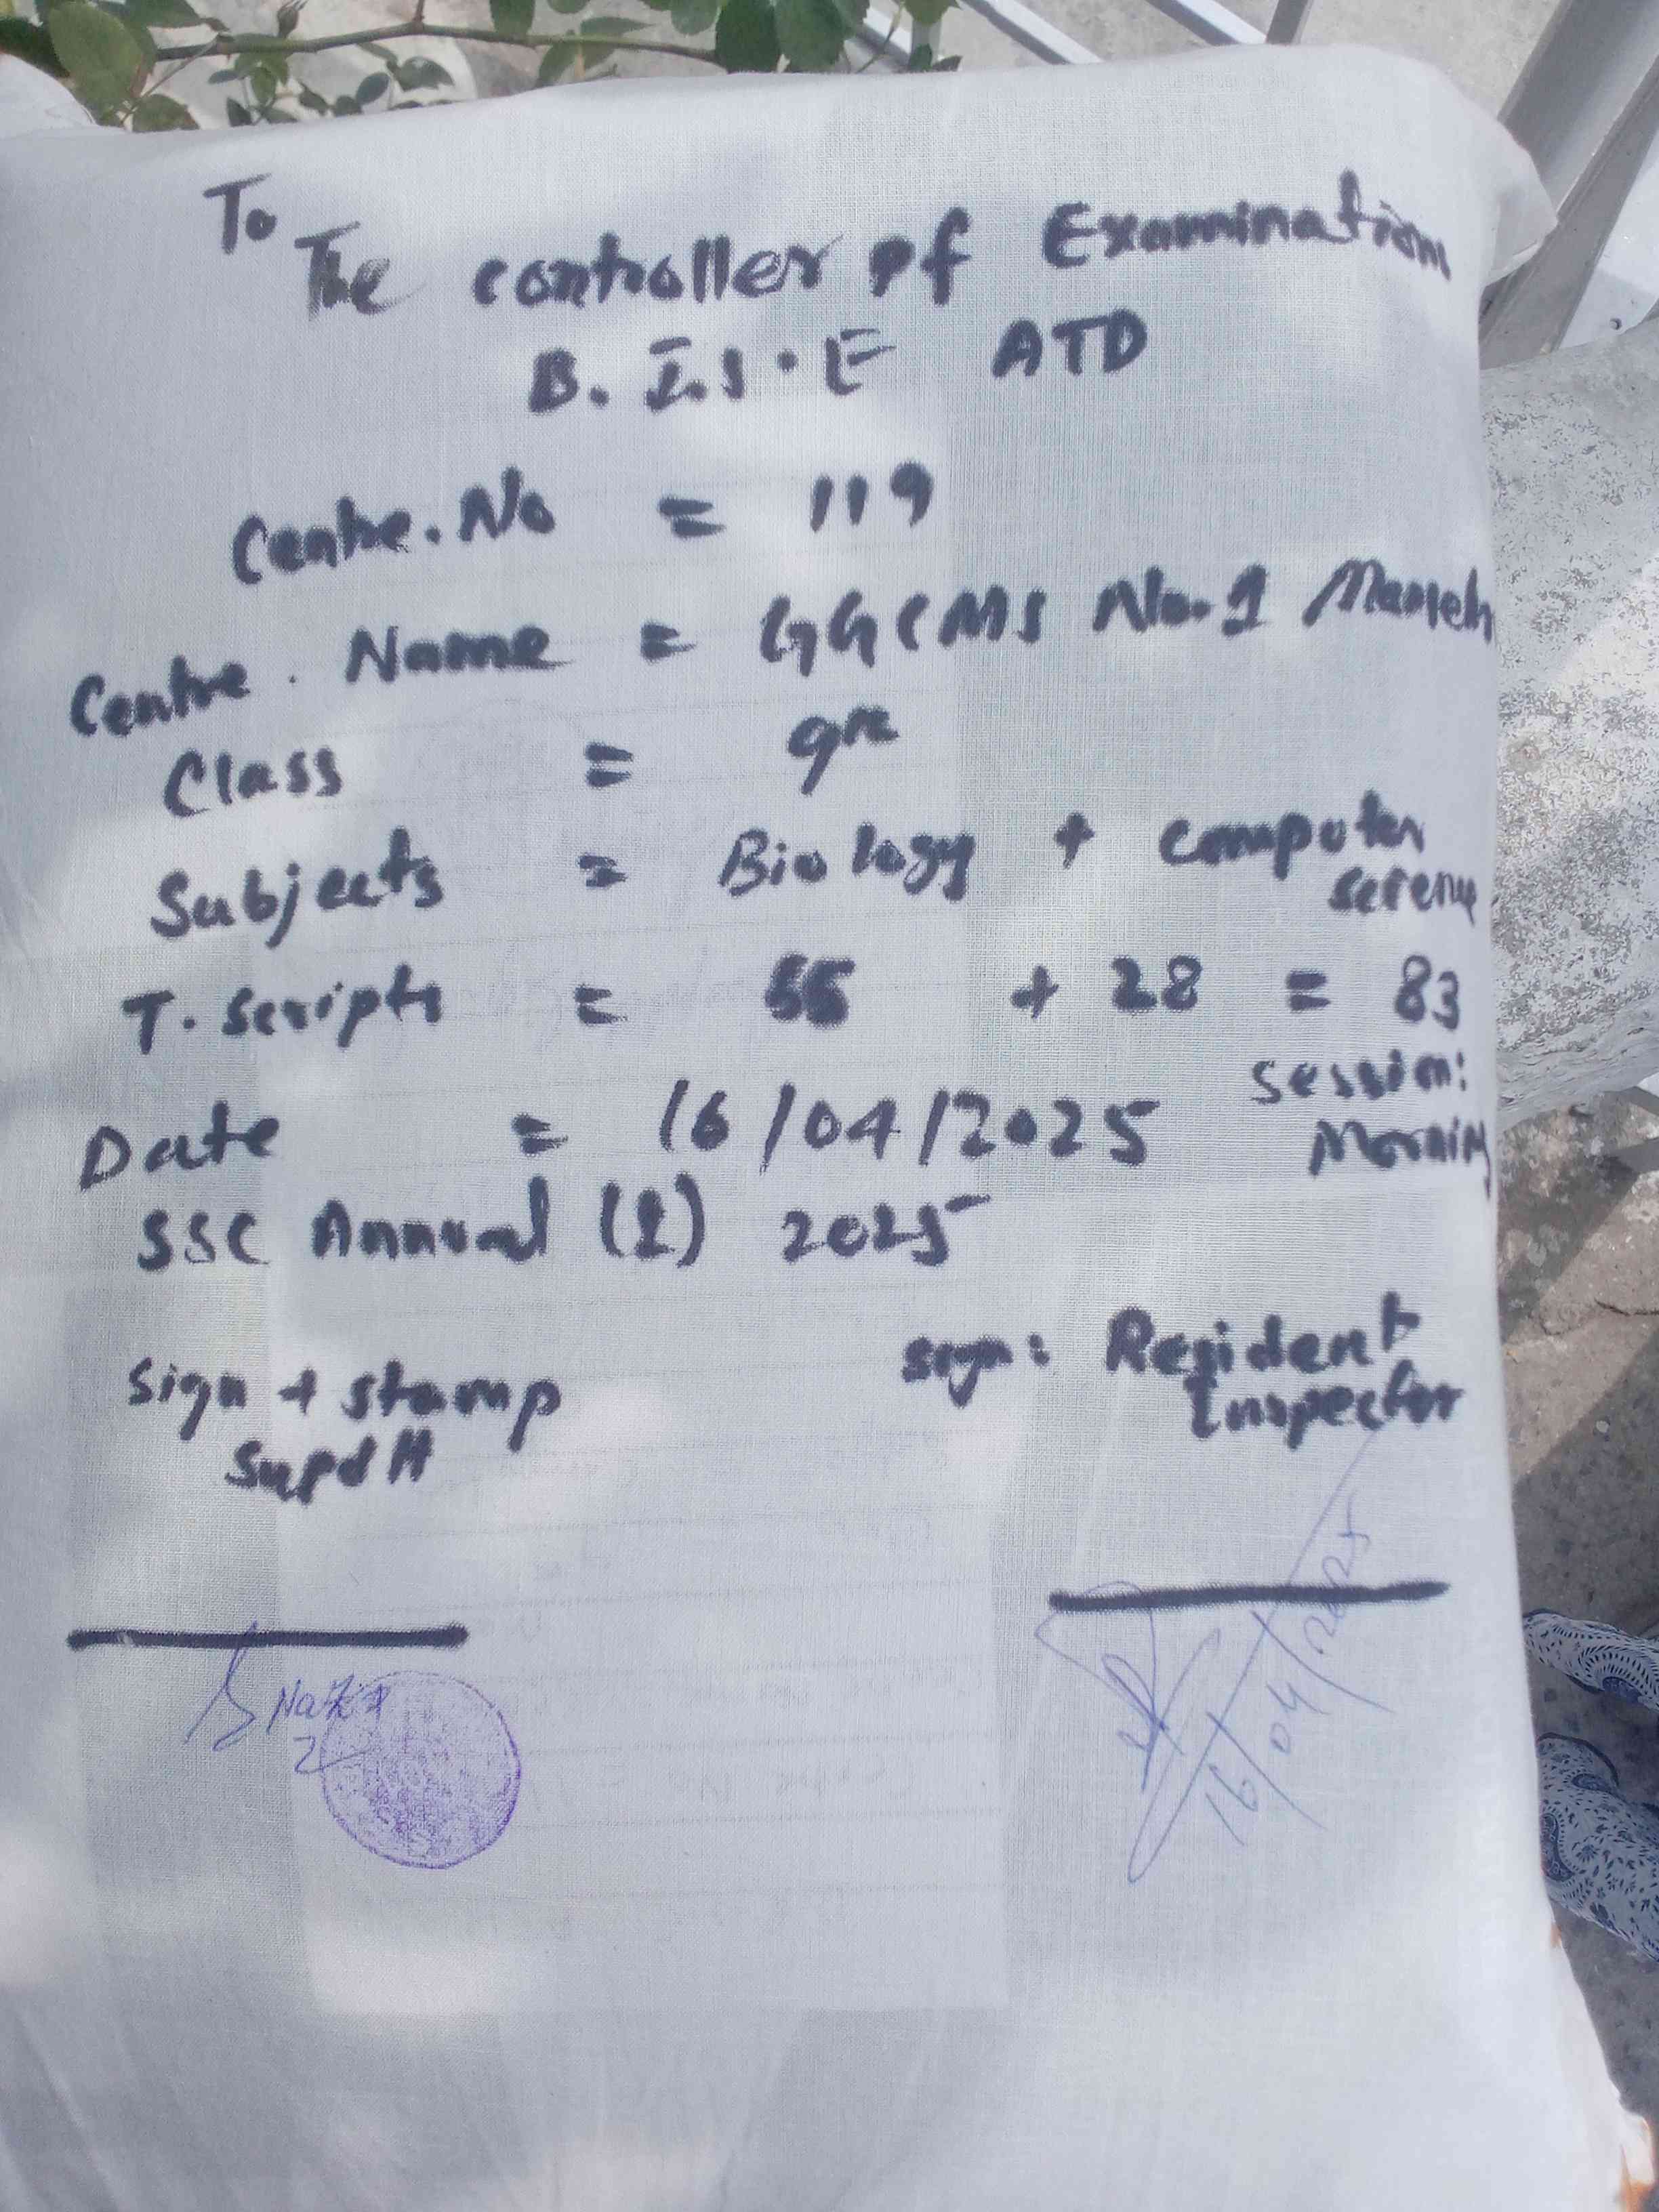 To
The controller of Examination
B.I.S.E ATD
Centre.No = 119
Centre. Name = GGCMS No.1
Class = 9th
Subjects = Biology + computer
T. scripts = 55 + 28 = 83
Date = 16/04/2025
session:
Morning
SSC Annual (1) 2025
sign + stamp
Supdtt
sign: Resident
Inspector
16/04/2025